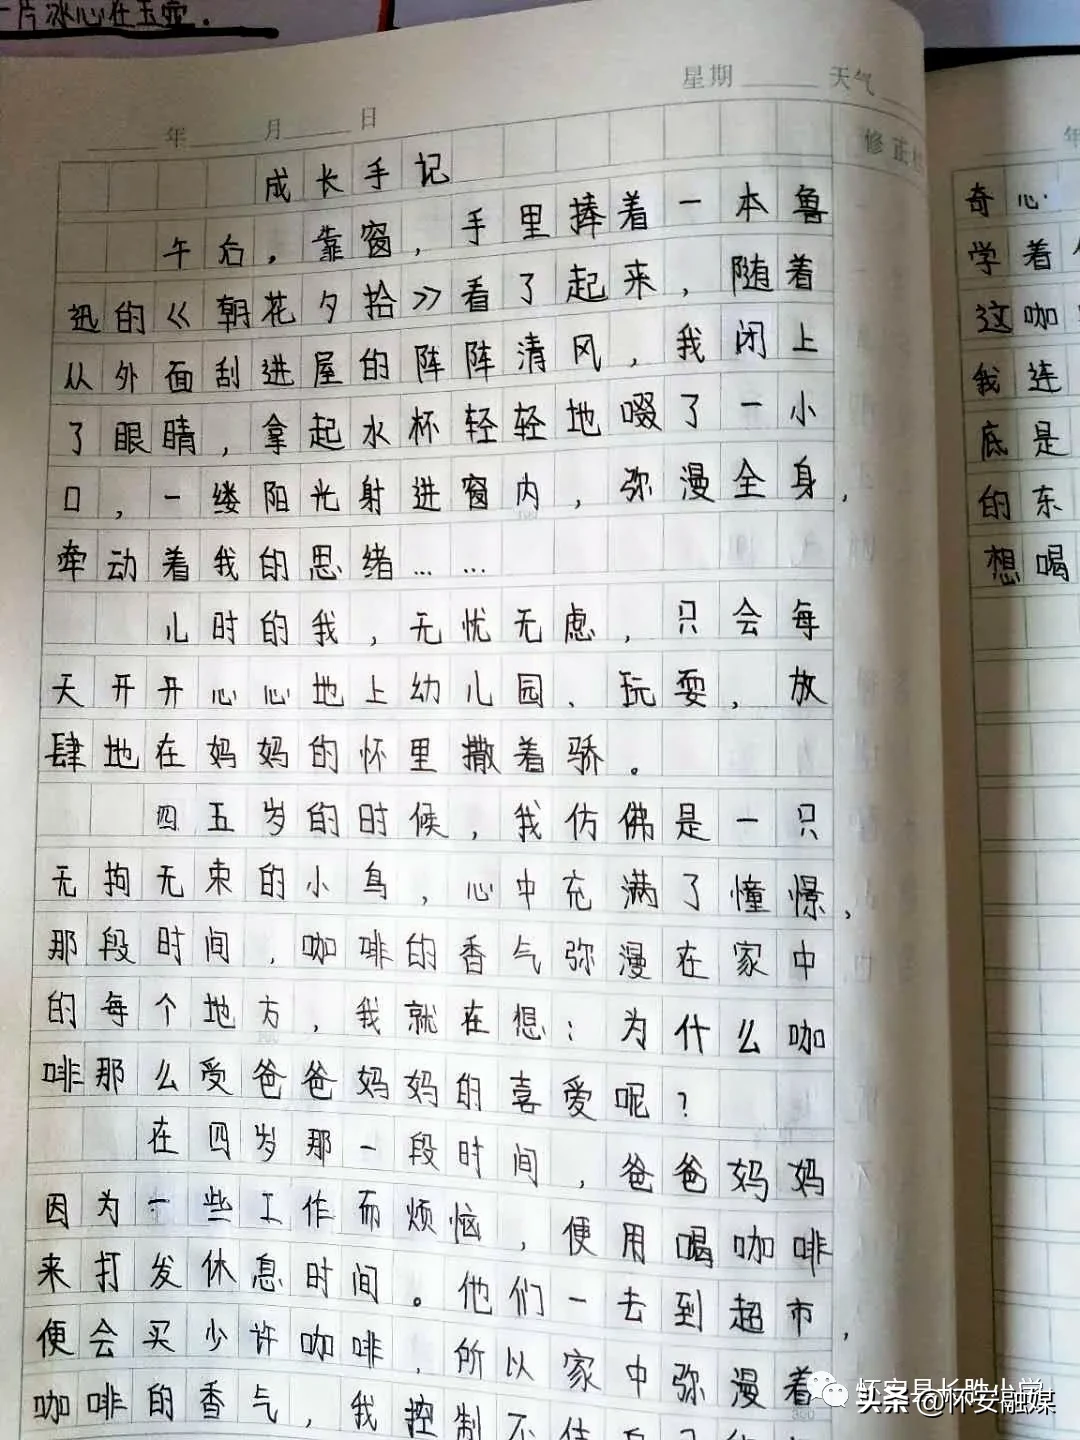 一片冰心在玉壶。
星期 天气
年 月 日
修正栏
成长手记
午后，靠窗，手里捧着一本鲁
迅的《朝花夕拾》看了起来，随着
从外面刮进屋的阵阵清风，我闭上
了眼睛，拿起水杯轻轻地啜了一小
口，一缕阳光射进窗内，弥漫全身，
牵动着我的思绪……
儿时的我，无忧无虑，只会每
天开开心心地上幼儿园、玩耍，放
肆地在妈妈的怀里撒着骄。
四五岁的时候，我仿佛是一只
无拘无束的小鸟，心中充满了憧憬，
那段时间，咖啡的香气弥漫在家中
的每个地方，我就在想：为什么咖
啡那么受爸爸妈妈的喜爱呢？
在四岁那一段时间，爸爸妈妈
因为一些工作而烦恼，便用喝咖啡
来打发休息时间。他们一去到超市，
便会买少许咖啡，所以家中弥漫着
咖啡的香气，我控制不住
年
奇心
学着
这咖
我连
底是
的东
想喝
300
怀安县长胜小学
头条@怀安融媒